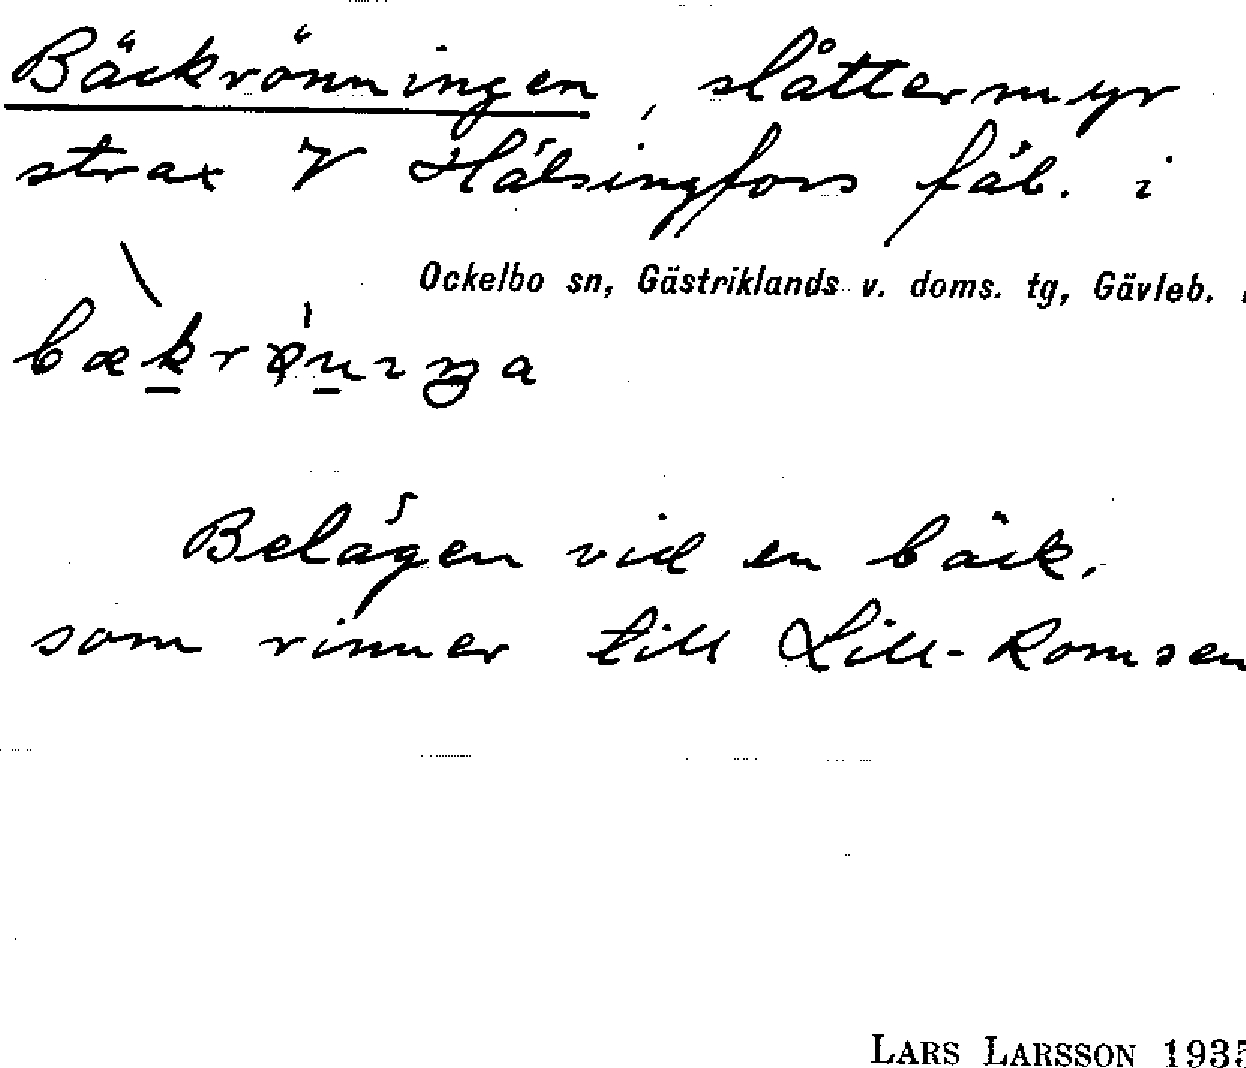 Bäckrönningen, slåttermyr
strax V Hälsingfors fäb. i
Ockelbo sn, Gästriklands v. doms. tg, Gävleb.
Belägen vid en bäck,
som rinner till Lill-Romsen
LARS LARSSON 1935